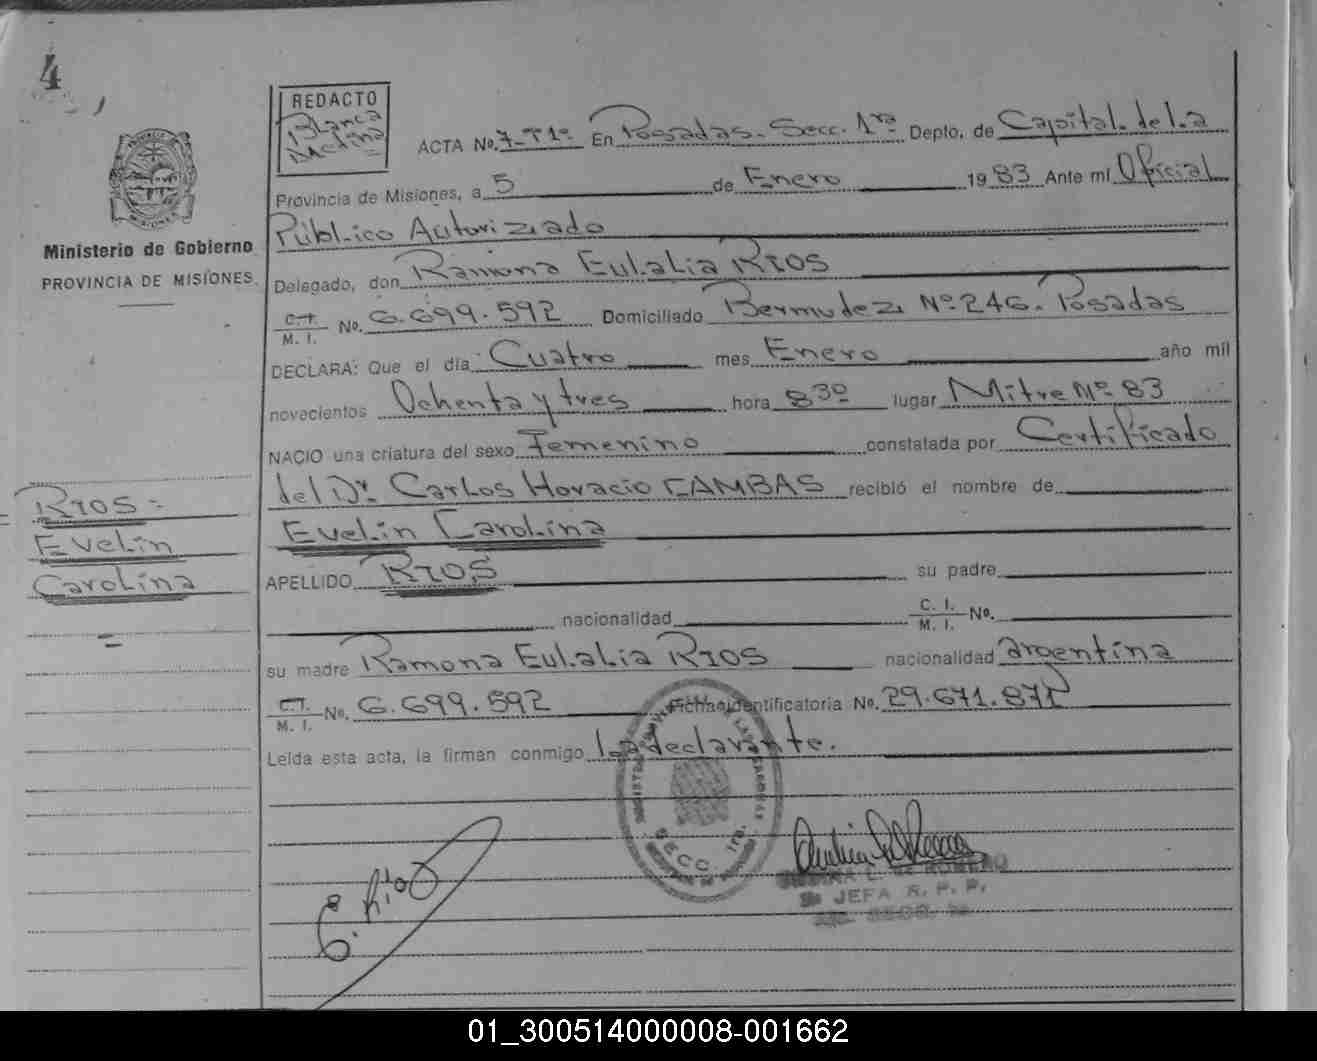 4
REDACTO
Blanca
Medina
ACTA No. 7-T1º En Posadas. Secc. 1ra Depto. de Capital. de l.a
Provincia de Misiones, a 5 de Enero 1983 Ante mí Oficial
Públ.ico Autorizado
Ministerio de Gobierno
PROVINCIA DE MISIONES.
Delegado, don Ramona Eulalia RIOS
C.I.
M. I. No. 6.699.592 Domiciliado Bermudez Nº 246. Posadas
DECLARA: Que el día Cuatro mes Enero año mil
novecientos Ochenta y tres hora 8 30 lugar Mitre Nº 83
NACIO una criatura del sexo Femenino constatada por Certificado
del Dr. Carlos Horacio CAMBAS recibió el nombre de
Evelin Carolina
RIOS =
Evelin
Carolina
APELLIDO RIOS su padre
nacionalidad C. I.
M. I. No.
su madre Ramona Eulalia RIOS nacionalidad argentina
C.I.
M. I. No. 6.699.592 Ficha identificatoria No. 29.671.871
Leída esta acta, la firman conmigo la declarante.
SECC. 1ra.
E. Rios
DE ROMERO
JEFA R. P. P.
01_300514000008-001662